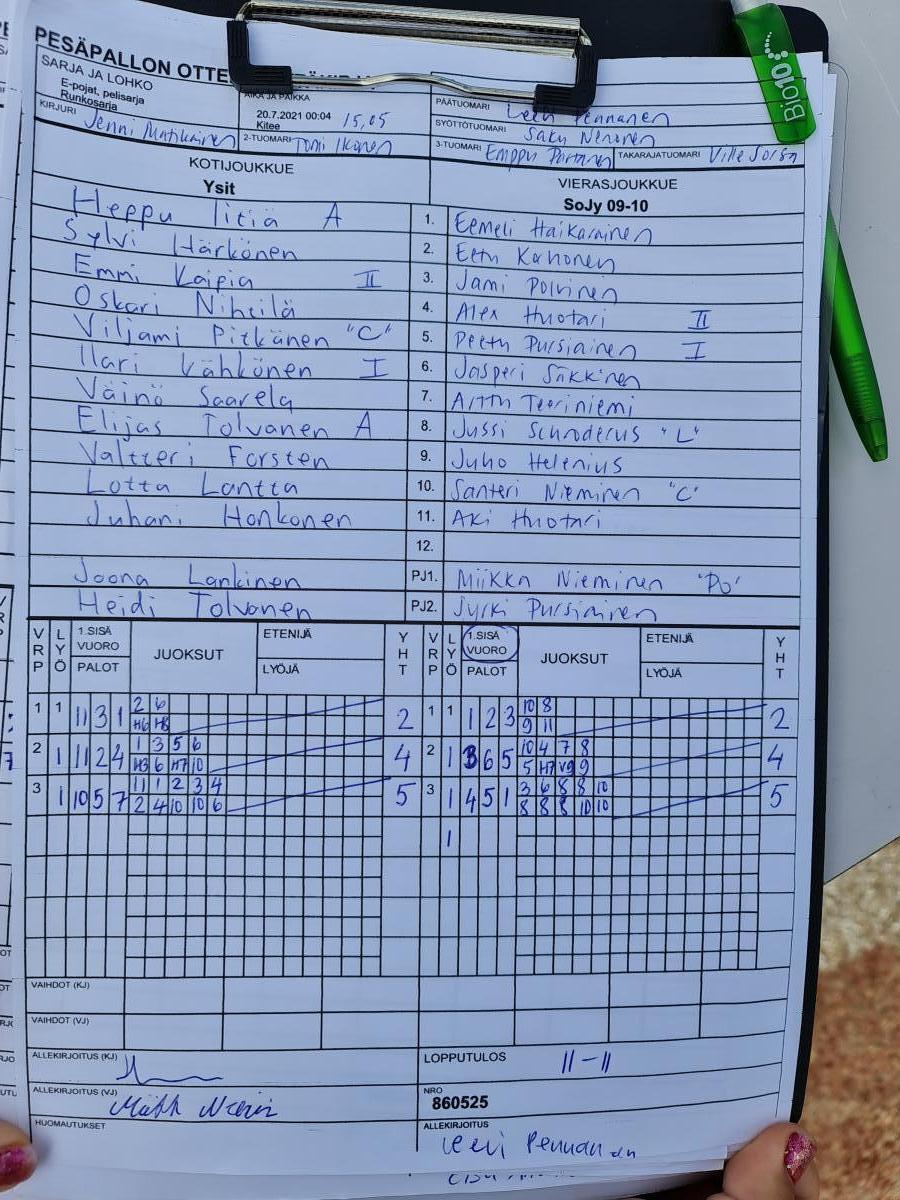 PESÄPALLON OTTE
SARJA JA LOHKO
E-pojat, pelisarja
Runkosarja
AIKA JA PAIKKA
20.7.2021 00:04 15,05
Kitee
PÄÄTUOMARI
SYÖTTÖTUOMARI Saku Nenonen
KIRJURI Jenni Matikainen 2-TUOMARI Tomi Ikonen 3-TUOMARI Emppu Partanen TAKARAJATUOMARI Ville Jorsa
KOTIJOUKKUE VIERASJOUKKUE
Ysit SoJy 09-10
Heppu Iitiä A 1. Eemeli Haikarainen
Sylvi Härkönen 2. Eetu Kahonen
Emmi Kaipia II 3. Jami Polvinen
Oskari Niheilä 4. Alex Huotari II
Viljami Pitkänen "C" 5. Peetu Pursiainen I
Ilari Kähkönen I 6. Jasperi Säkkinen
Väinö Saarela 7. Arttu Teeriniemi
Elijas Tolvanen A 8. Jussi Schroderus "L"
Valtteri Forsten 9. Juho Helenius
Lotta Lantta 10. Santeri Nieminen "C"
Juhani Honkonen 11. Aki Huotari
12.
Joona Lankinen PJ1. Miikka Nieminen "PO"
Heidi Tolvanen PJ2. Jyrki Pursiainen
VRP LYÖ 1.SISÄ VUORO PALOT JUOKSUT ETENIJÄ LYÖJÄ YHT VRP LYÖ 1.SISÄ VUORO PALOT JUOKSUT ETENIJÄ LYÖJÄ YHT
1 1 11 3 1 2 6 2 1 1 1 2 3 10 8 2
H6 H8 9 11
2 1 11 2 4 1 3 5 6 4 2 1 3 6 5 10 4 7 8 4
H3 6 H7 10 5 H7 V9 9
3 1 10 5 7 11 1 2 3 4 5 3 1 4 5 1 3 6 8 8 10 5
2 4 10 10 6 8 8 8 10 10
1
VAIHDOT (KJ)
VAIHDOT (VJ)
ALLEKIRJOITUS (KJ) LOPPUTULOS 11-11
ALLEKIRJOITUS (VJ) NRO
860525
HUOMAUTUKSET ALLEKIRJOITUS
Bio10